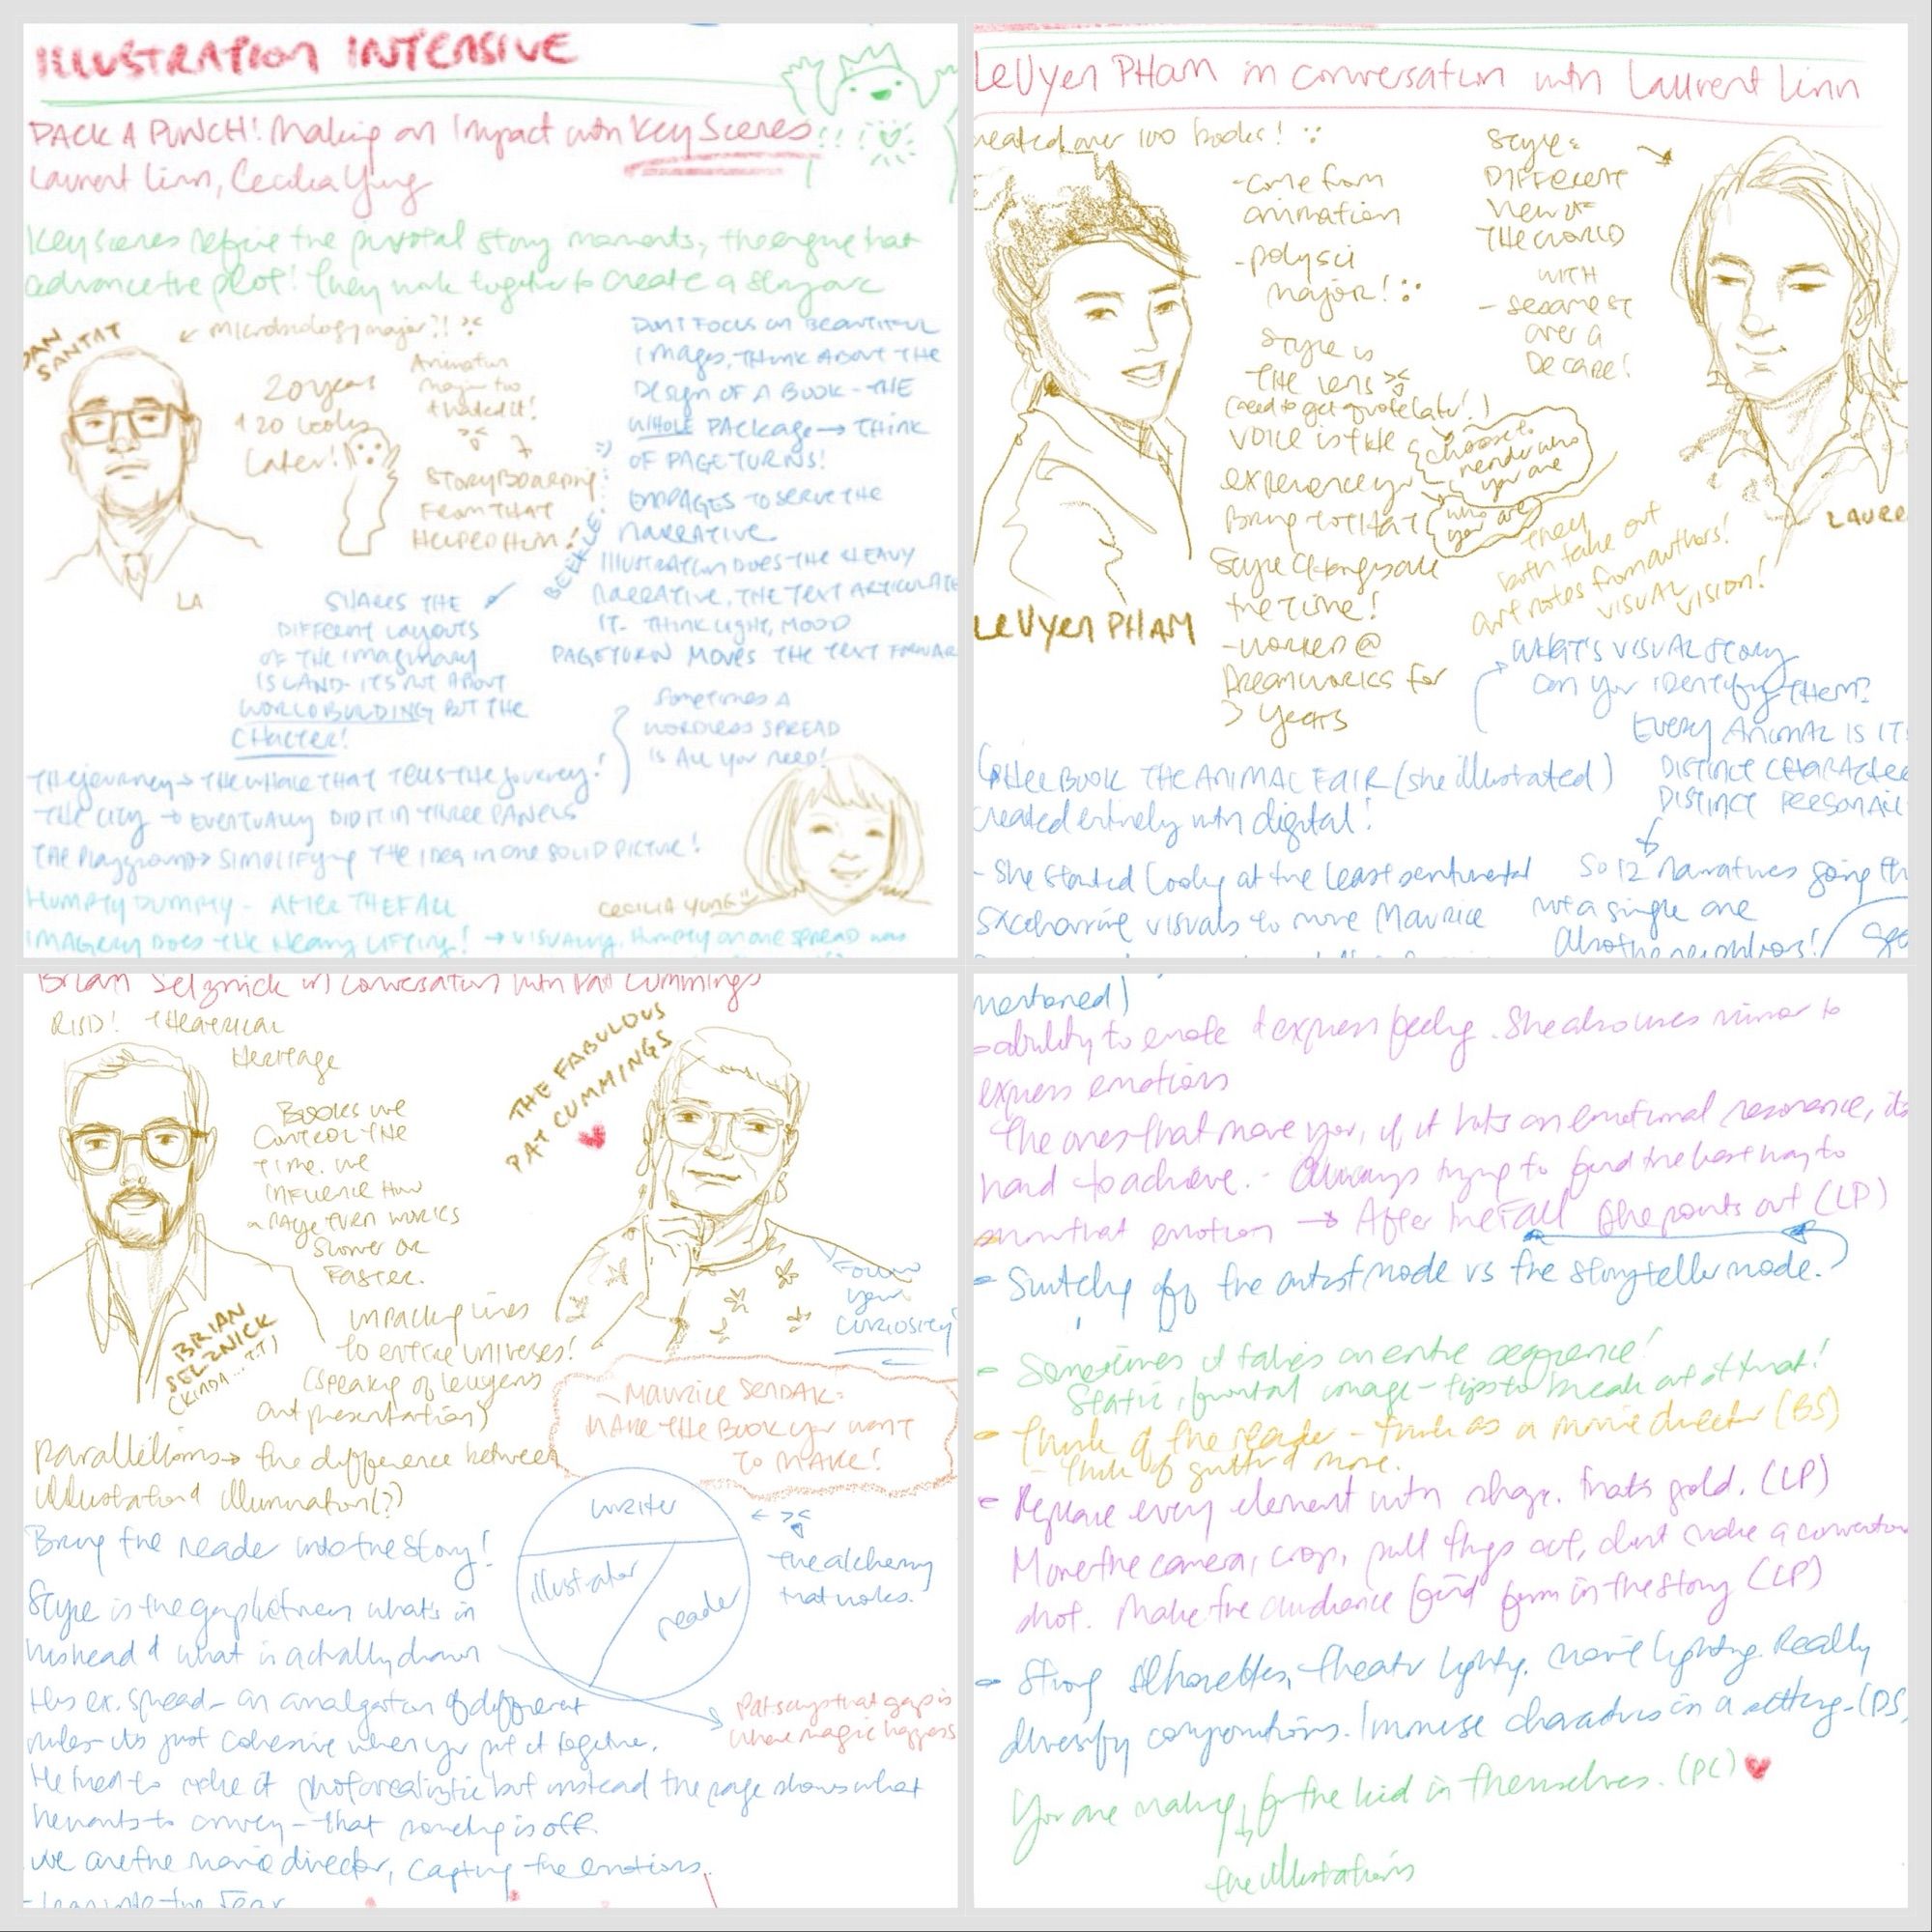 ILLUSTRATION INTENSIVE
PACK A PUNCH! Making an Impact with Key Scenes!!
Laurent Linn, Cecilia Yung
Key scenes define the pivotal story moments, the engine that
advance the plot! They work together to create a story arc
DAN
SANTAT
← microbiology major?!
20 years
+ 20 books
later!
Animation
major too
& hated it!
STORYBOARDING
FROM THAT
HELPED HIM!
LA
DON'T FOCUS ON BEAUTIFUL
IMAGES, THINK ABOUT THE
DESIGN OF A BOOK - THE
WHOLE PACKAGE → THINK
OF PAGE TURNS!
ENDPAGES TO SERVE THE
NARRATIVE.
BEEKLE:
ILLUSTRATION DOES THE HEAVY
NARRATIVE, THE TEXT ARTICULATE
IT. THINK LIGHT, MOOD
PAGETURN MOVES THE TEXT FORWAR
SHARES THE
DIFFERENT LAYOUTS
OF THE IMAGINARY
ISLAND- IT'S NOT ABOUT
WORLDBUILDING BUT THE
CHARCTER!
SOMETIMES A
WORDLESS SPREAD
IS ALL YOU NEED!
THE JOURNEY → THE WHALE THAT TELLS THE JOURNEY!
THE CITY → EVENTUALLY DID IT IN THREE PANELS
THE PLAYGROUND → SIMPLIFYING THE IDEA IN ONE SOLID PICTURE!
CECILIA YUNG
HUMPTY DUMPTY - AFTER THE FALL
IMAGERY DOES THE HEAVY LIFTING! → VISUALLY, Humpty on one spread was
LeUyen PHam in conversation with Laurent Linn
reated over 100 books!
- come from
animation
- polysci
major!
Style is
THE lens
(need to get quote later!)
VOICE is the
experience you
Bring to that
choose to
render who
you are
who are
you
Style changes all
the time!
- worked @
Dreamworks for
3 years
LEUYEN PHAM
Style:
DIFFERENT
VIEW OF
THE WORLD
WITH
- SESAME ST
OVER A
DECADE!
LAURE
they
both take out
art notes from authors!
VISUAL VISION!
WHAT'S VISUAL STORY
can you identify THEM?
EVERY ANIMAL IS IT
DISTINCT CHARACTE
DISTINCT PERSONALI
So 12 narratives going th
not a single one
Also the neighbors!
OTHER BOOK THE ANIMAL FAIR (she illustrated)
created entirely with digital!
- She started looking at the least sentimental
saccharine visuals to more Maurice
Brian Selznick in conversation with Pat Cummings
RISD! THEATRICAL
Heritage
Books we
CONTROL THE
TIME. WE
INFLUENCE HOW
a PAGE TURN WORKS
SLOWER OR
FASTER.
BRIAN
SELZNICK
(KINDA... T.T)
THE FABULOUS
PAT CUMMINGS
Follow
your
curiosity!
unpacking lines
to entire universes!
(speaking of leuyens
art presentation)
- MAURICE SENDAK:
MAKE THE BOOK YOU WANT
TO MAKE!
Parallelisms → the difference between
illustration & illumination(?)
writer
illustrator
reader
the alchemy
that works.
Bring the reader into the story!
Style is the gap between what's in
his head & what is actually drawn
Pat says that gap is
where magic happens
His ex. spread - an amalgation of different
rules - its just cohesive when you put it together.
He tried to make it photorealistic but instead the page shows what
he wants to convey - that something is off.
We are the movie director, capting the emotions.
- lean into the fear
mentioned)
- ability to emote & express feeling. She also uses mirror to
express emotions
The ones that move you, if it hits an emotional resonance, its
hard to achieve. - Always trying to find the best way to
show that emotion → After the Fall she points out (LP)
- Switchg off the artist mode vs the storyteller mode.
- Sometimes it takes an entire sequence!
Static, frontal image - tips to break out of that!
- Think of the reader - think as a movie director (BS)
- Think of gutter & more.
- Replace every element with shape. that's gold. (LP)
Move the camera, crop, pull things out, dont make a convention
shot. Make the audience find form in the story (LP)
- Strong silhouettes, theatr lighting. movie lighting. Really
diversify compositions. Immerse characters in a setting - (DS)
You are making for the kid in themselves. (PC)
the illustrations